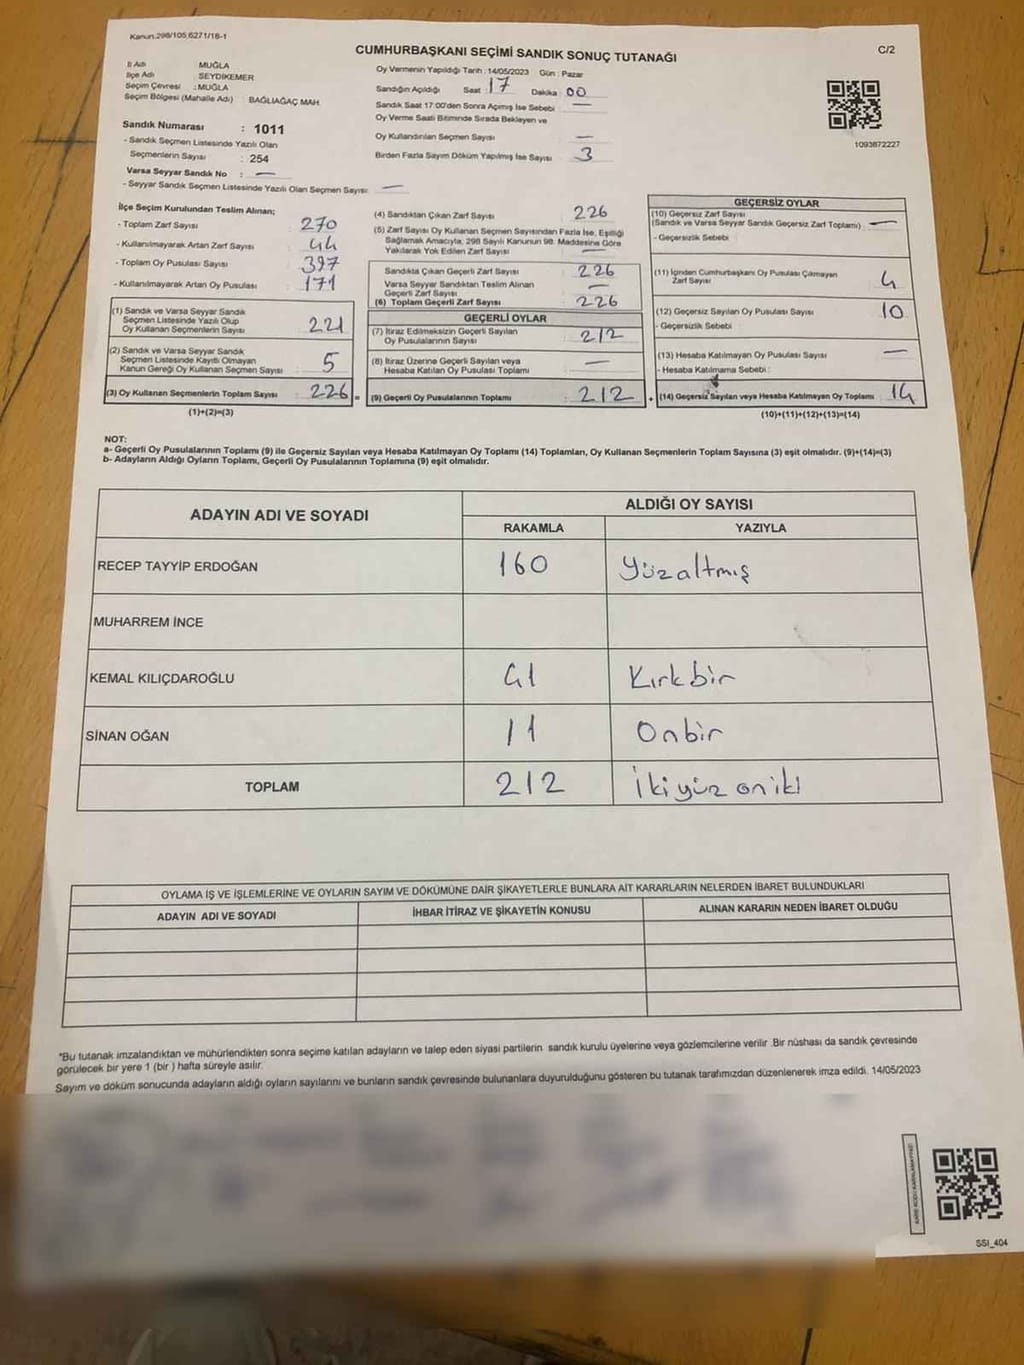 Kanun:298/105,6271/18-1
CUMHURBAŞKANI SEÇİMİ SANDIK SONUÇ TUTANAĞI
C/2
İl Adı MUĞLA
İlçe Adı SEYDİKEMER
Seçim Çevresi : MUĞLA
Seçim Bölgesi (Mahalle Adı) : BAĞLIAĞAÇ MAH.
Sandık Numarası : 1011
- Sandık Seçmen Listesinde Yazılı Olan
Seçmenlerin Sayısı : 254
Varsa Seyyar Sandık No : —
- Seyyar Sandık Seçmen Listesinde Yazılı Olan Seçmen Sayısı: —
Oy Vermenin Yapıldığı Tarih : 14/05/2023 Gün : Pazar
Sandığın Açıldığı Saat : 17 Dakika : 00
Sandık Saat 17:00'den Sonra Açımış İse Sebebi —
Oy Verme Saati Bitiminde Sırada Bekleyen ve
Oy Kullandırılan Seçmen Sayısı —
Birden Fazla Sayım Döküm Yapılmış İse Sayısı 3
1093872227
İlçe Seçim Kurulundan Teslim Alınan;
- Toplam Zarf Sayısı 270
- Kullanılmayarak Artan Zarf Sayısı 44
- Toplam Oy Pusulası Sayısı 397
- Kullanılmayarak Artan Oy Pusulası 171
(1) Sandık ve Varsa Seyyar Sandık
Seçmen Listesinde Yazılı Olup
Oy Kullanan Seçmenlerin Sayısı 221
(2) Sandık ve Varsa Seyyar Sandık
Seçmen Listesinde Kayıtlı Olmayan
Kanun Gereği Oy Kullanan Seçmen Sayısı 5
(3) Oy Kullanan Seçmenlerin Toplam Sayısı 226 =
(1)+(2)=(3)
(4) Sandıktan Çıkan Zarf Sayısı 226
(5) Zarf Sayısı Oy Kullanan Seçmen Sayısından Fazla İse, Eşitliği
Sağlamak Amacıyla, 298 Sayılı Kanunun 98. Maddesine Göre
Yakılarak Yok Edilen Zarf Sayısı —
Sandıkta Çıkan Geçerli Zarf Sayısı 226
Varsa Seyyar Sandıktan Teslim Alınan
Geçerli Zarf Sayısı —
(6) Toplam Geçerli Zarf Sayısı 226
GEÇERLİ OYLAR
(7) İtiraz Edilmeksizin Geçerli Sayılan
Oy Pusulalarının Sayısı : 212
(8) İtiraz Üzerine Geçerli Sayılan veya
Hesaba Katılan Oy Pusulası Toplamı : —
(9) Geçerli Oy Pusulalarının Toplamı : 212 +
GEÇERSİZ OYLAR
(10) Geçersiz Zarf Sayısı
(Sandık ve Varsa Seyyar Sandık Geçersiz Zarf Toplamı) : —
- Geçersizlik Sebebi
(11) İçinden Cumhurbaşkanı Oy Pusulası Çıkmayan
Zarf Sayısı 4
(12) Geçersiz Sayılan Oy Pusulası Sayısı 10
- Geçersizlik Sebebi
(13) Hesaba Katılmayan Oy Pusulası Sayısı —
- Hesaba Katılmama Sebebi :
(14) Geçersiz Sayılan veya Hesaba Katılmayan Oy Toplamı 14
(10)+(11)+(12)+(13)=(14)
NOT:
a- Geçerli Oy Pusulalarının Toplamı (9) ile Geçersiz Sayılan veya Hesaba Katılmayan Oy Toplamı (14) Toplamları, Oy Kullanan Seçmenlerin Toplam Sayısına (3) eşit olmalıdır. (9)+(14)=(3)
b- Adayların Aldığı Oyların Toplamı, Geçerli Oy Pusulalarının Toplamına (9) eşit olmalıdır.
ADAYIN ADI VE SOYADI
ALDIĞI OY SAYISI
RAKAMLA YAZIYLA
RECEP TAYYİP ERDOĞAN 160 Yüzaltmış
MUHARREM İNCE
KEMAL KILIÇDAROĞLU 41 Kırkbir
SİNAN OĞAN 11 Onbir
TOPLAM 212 İkiyüz oniki
OYLAMA İŞ VE İŞLEMLERİNE VE OYLARIN SAYIM VE DÖKÜMÜNE DAİR ŞİKAYETLERLE BUNLARA AİT KARARLARIN NELERDEN İBARET BULUNDUKLARI
ADAYIN ADI VE SOYADI İHBAR İTİRAZ VE ŞİKAYETİN KONUSU ALINAN KARARIN NEDEN İBARET OLDUĞU
*Bu tutanak imzalandıktan ve mühürlendikten sonra seçime katılan adayların ve talep eden siyasi partilerin sandık kurulu üyelerine veya gözlemcilerine verilir .Bir nüshası da sandık çevresinde
görülecek bir yere 1 (bir ) hafta süreyle asılır.
Sayım ve döküm sonucunda adayların aldığı oyların sayılarını ve bunların sandık çevresinde bulunanlara duyurulduğunu gösteren bu tutanak tarafımızdan düzenlenerek imza edildi. 14/05/2023
KARE KODU KARALAMAYINIZ!
SSI_404